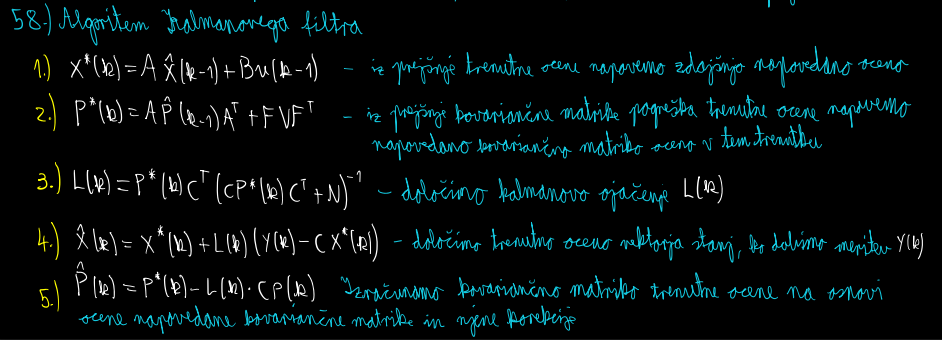 58.) Algoritem Kalmanovega filtra
1.) X*(k)=A X̂(k-1)+Bu(k-1) - iz prejšnje trenutne ocene napovemo zdajšnjo napovedano oceno
2.) P*(k)=A P̂(k-1)Aᵀ+FVFᵀ - iz prejšnje kovariančne matrike pogreška trenutne ocene napovemo
napovedano kovariančno matriko oceno v tem trenutku
3.) L(k)=P*(k)Cᵀ(CP*(k)Cᵀ+N)⁻¹ - določimo kalmanovo ojačenje L(k)
4.) X̂(k)=X*(k)+L(k)(Y(k)-CX*(k)) - določimo trenutno oceno vektorja stanj, ko dobimo meritev Y(k)
5.) P̂(k)=P*(k)-L(k)·CP(k) Izračunamo kovariančno matriko trenutne ocene na osnovi
ocene napovedane kovariančne matrike in njene korekcije